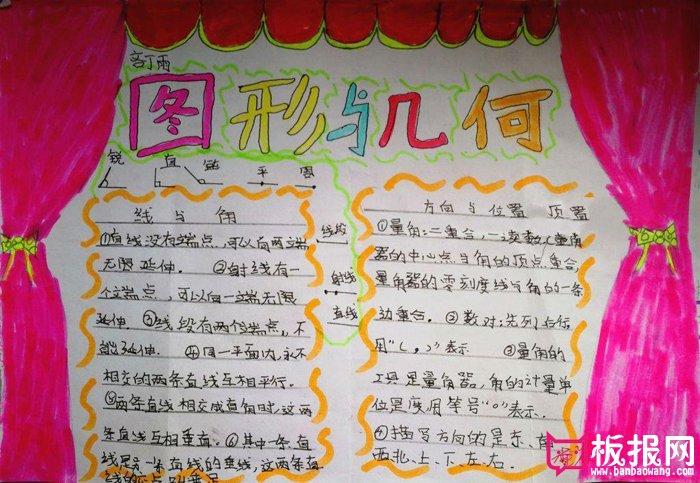 图形与几何
锐 直 钝 平 周
线与角
①直线没有端点，可以向两端
无限延伸．②射线有一
个端点，可以向一端无限
延伸．③线段有两个端点，不
能延伸．④同一平面内，永不
相交的两条直线互相平行．
⑤两条直线相交成直角时，这两
条直线互相垂直．⑥其中一条直
线是另一条直线的垂线，这两条直
线的
线段
射线
直线
方向与位置 顶置
①量角：二重合，一读数（量角
器的中心点与角的顶点重合
量角器的零刻度线与角的一条
边重合．②数对：先列后行
用"（，）"表示 ③量角的
工具是量角器，角的计量单
位是度用符号"°"表示．
④描写方向的是东、
西北、上、下、左、右．
板报网
www.banbaowang.com